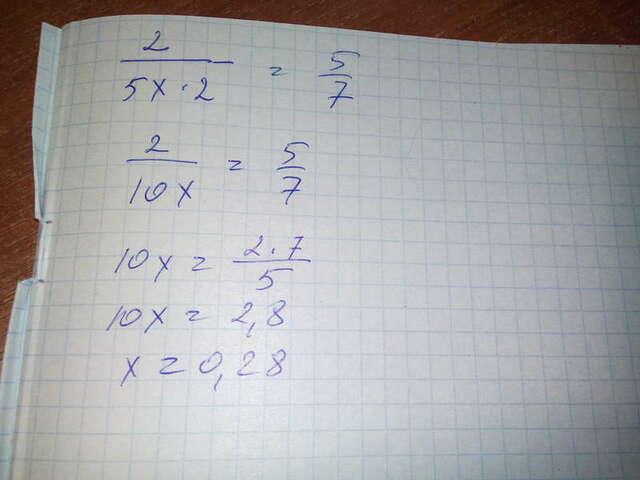 2/(5x·2) = 5/7
2/(10x) = 5/7
10x = (2·7)/5
10x = 2,8
x = 0,28